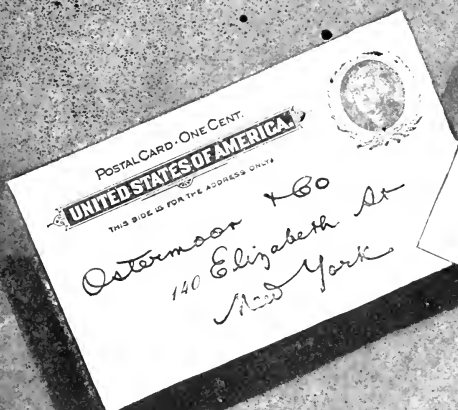 POSTAL CARD - ONE CENT.
UNITED STATES OF AMERICA.
THIS SIDE IS FOR THE ADDRESS ONLY.
Ostermoor & Co
140 Elizabeth St
New York